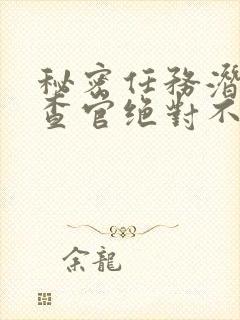 秘密任務潛
查官絕對不
余龍